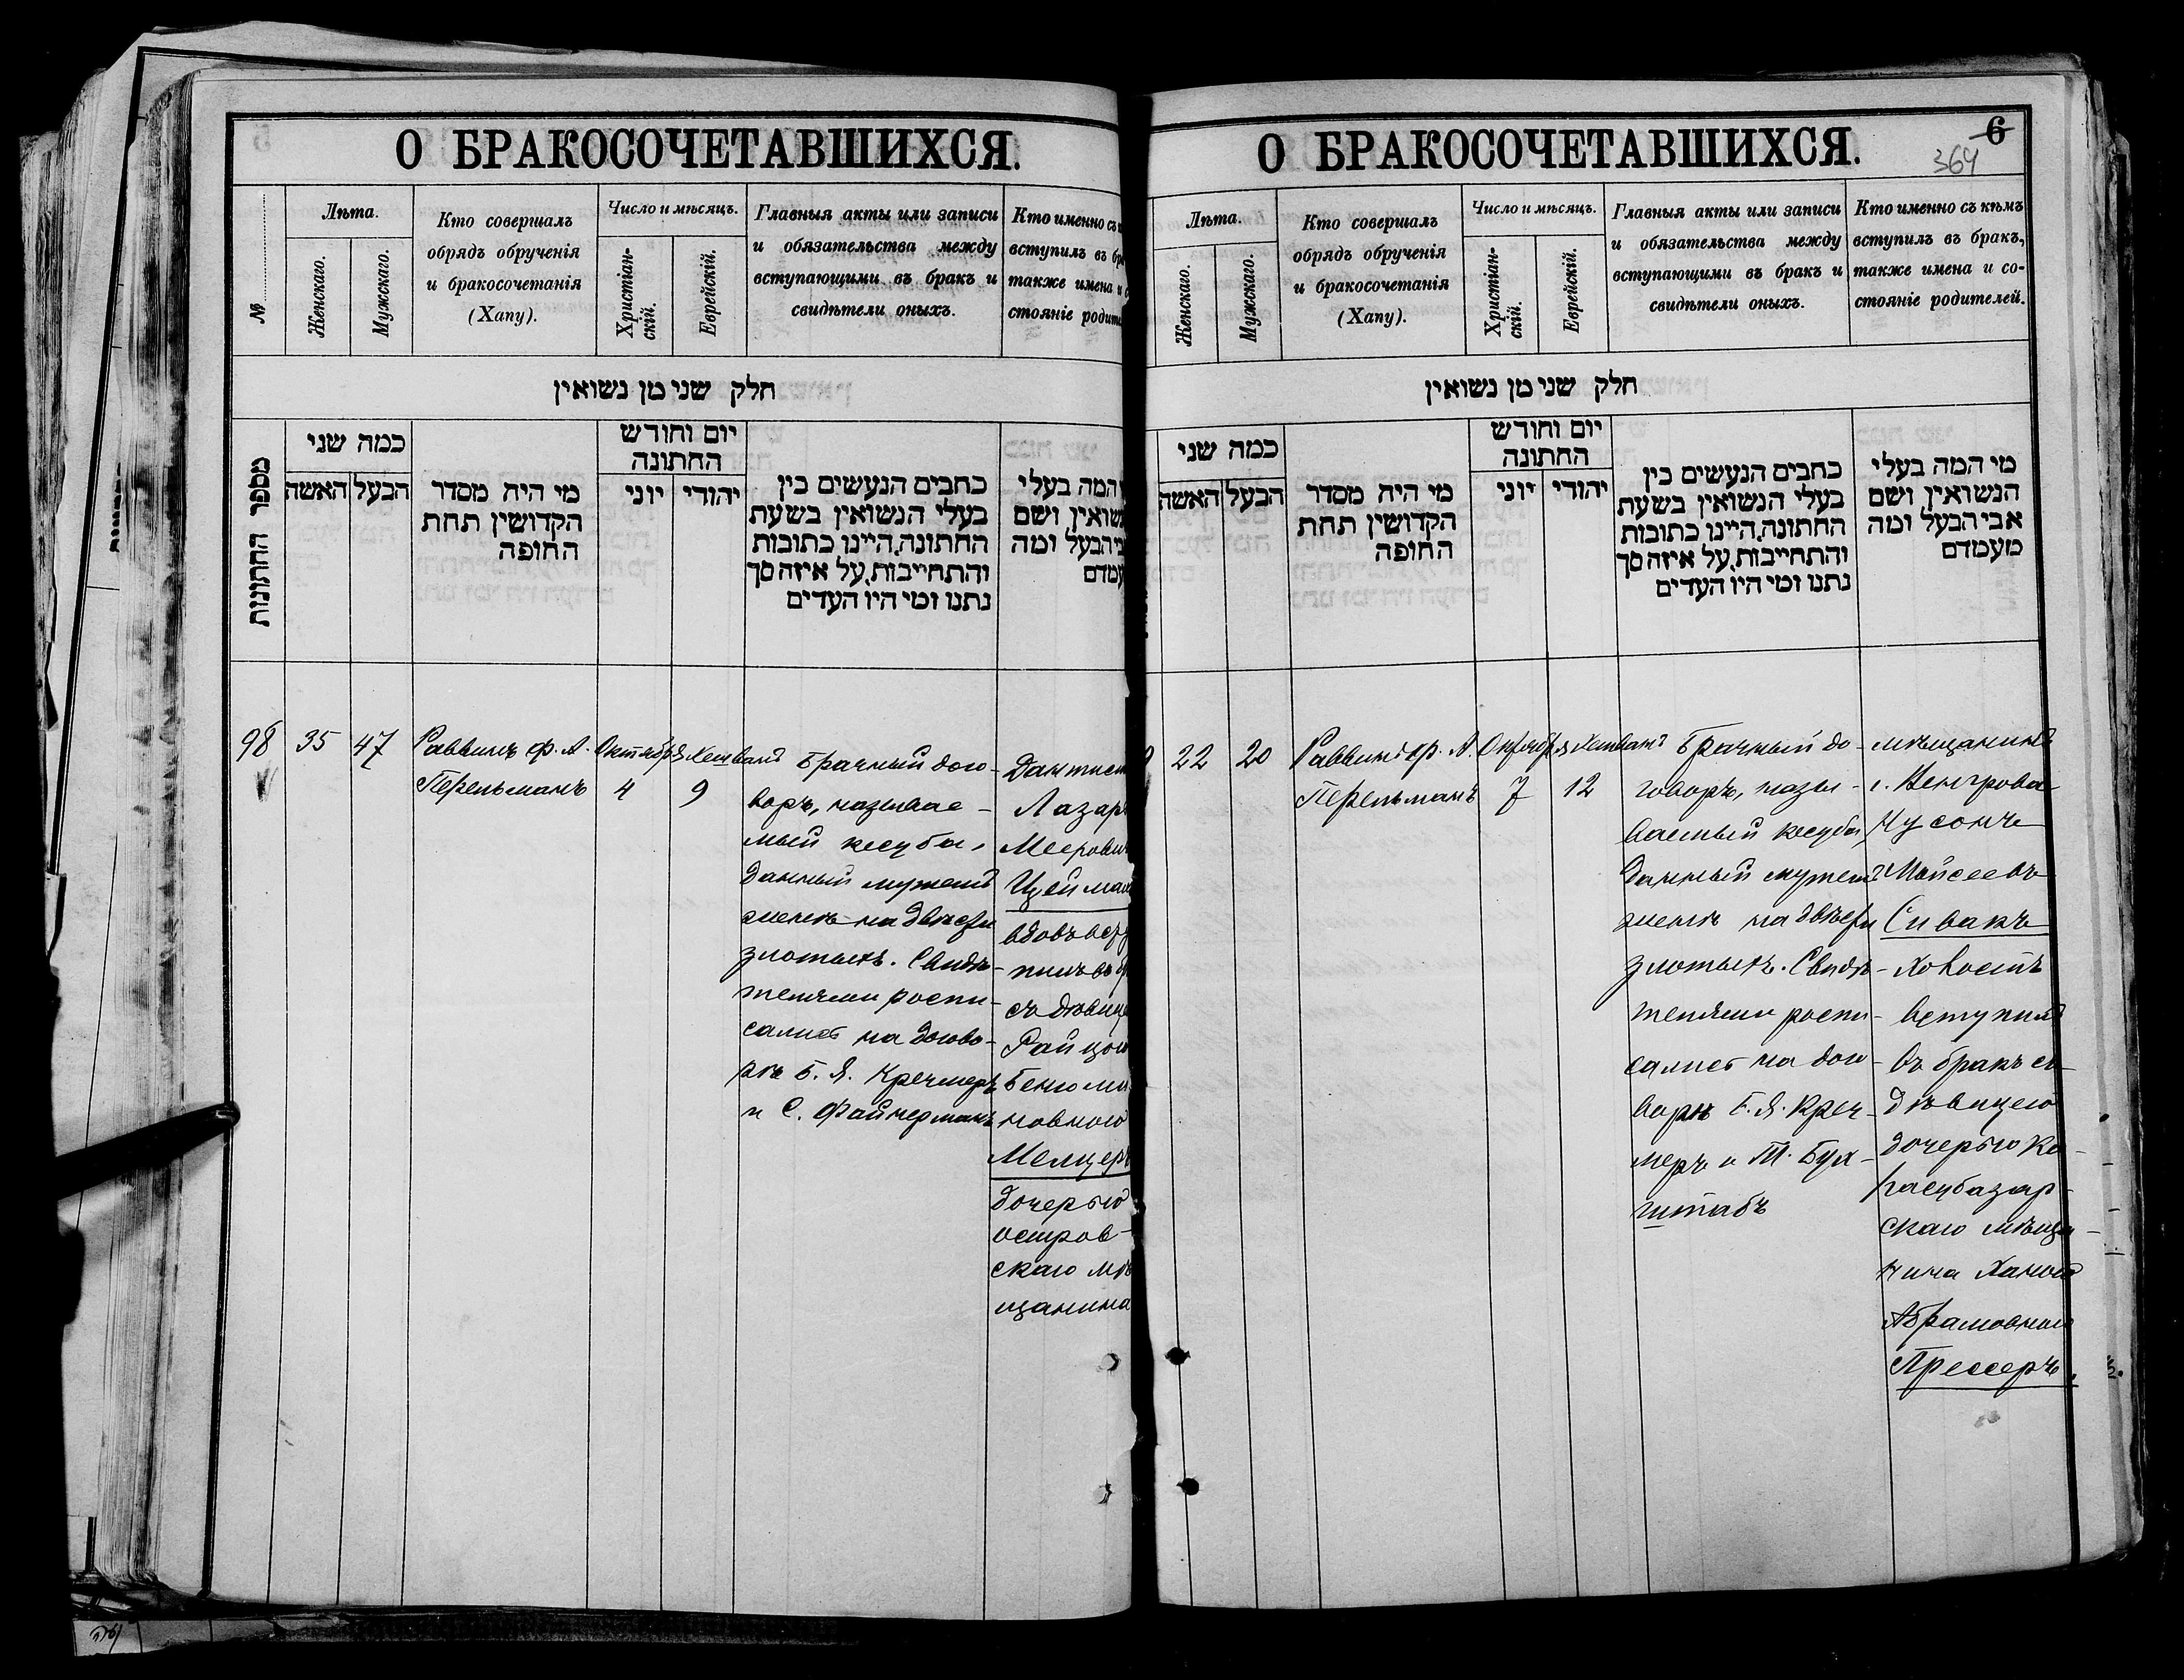 О БРАКОСОЧЕТАВШИХСЯ.
№
Лѣта.
Женскаго.
Мужскаго.
Кто совершалъ
обрядъ обрученія
и бракосочетанія
(Хапу).
Число и мѣсяцъ.
Христіан-
скій.
Еврейскій.
Главныя акты или записи
и обязательства между
вступающими въ бракъ и
свидѣтели оныхъ.
Кто именно съ
вступилъ въ
также имена
стояніе
חלק שני מן נשואין
מספר החתונות
כמה שני
האשה
הבעל
מי היה מסדר
הקדושין תחת
החופה
יום וחודש
החתונה
יוני
יהודי
כתבים הנעשים בין
בעלי הנשואין בשעת
החתונה,היינו כתובות
והתחייבות,על איזה סך
נתנו ומי היו העדים
המה בעלי
ושם
הבעל ומה
98
35
47
Раввинъ Ф. А.
Перельманъ
Октября
4
Хешванъ
9
Брачный дого-
воръ, называе-
мый кесуба,
данный мужемъ
женѣ на двѣсти
злотыхъ. Свидѣ-
телями распи-
сались на догово-
рѣ Б. Я. Кречмеръ
и С. Файнерманъ
Дантист
Лазарь
Мееровичъ
Цейман
вдовъ всту
пилъ въ бр
съ дѣвице
Райцою
Бенюми
новною
Мелцеръ
дочерью
остров-
скаго мѣ
щанина
О БРАКОСОЧЕТАВШИХСЯ.
6
364
Лѣта.
Женскаго.
Мужскаго.
Кто совершалъ
обрядъ обрученія
и бракосочетанія
(Хапу).
Число и мѣсяцъ.
Христіан-
скій.
Еврейскій.
Главныя акты или записи
и обязательства между
вступающими въ бракъ и
свидѣтели оныхъ.
Кто именно съ кѣмъ
вступилъ въ бракъ,
также имена и со-
стояніе родителей.
חלק שני מן נשואין
כמה שני
האשה
הבעל
מי היה מסדר
הקדושין תחת
החופה
יום וחודש
החתונה
יוני
יהודי
כתבים הנעשים בין
בעלי הנשואין בשעת
החתונה,היינו כתובות
והתחייבות,על איזה סך
נתנו ומי היו העדים
מי המה בעלי
הנשואין ושם
אבי הבעל ומה
מעמדם
22
20
Раввинъ Ф. А.
Перельманъ
Октября
7
Хешванъ
12
Брачный до-
говоръ, назы-
ваемый кесуба,
данный мужемъ
женѣ на двѣсти
злотыхъ. Свидѣ-
телями распи-
сались на дого-
ворѣ Б. Я. Креч-
меръ и М. Бух-
штабъ
мѣщанинъ
г. Венгрова
Нусонъ
Мойсеевъ
Сивакъ
холостъ
вступилъ
въ бракъ съ
дѣвицею
дочерью Ка-
расубазар-
скаго мѣща-
нина Ханою
Абрамовною
Прессеръ.